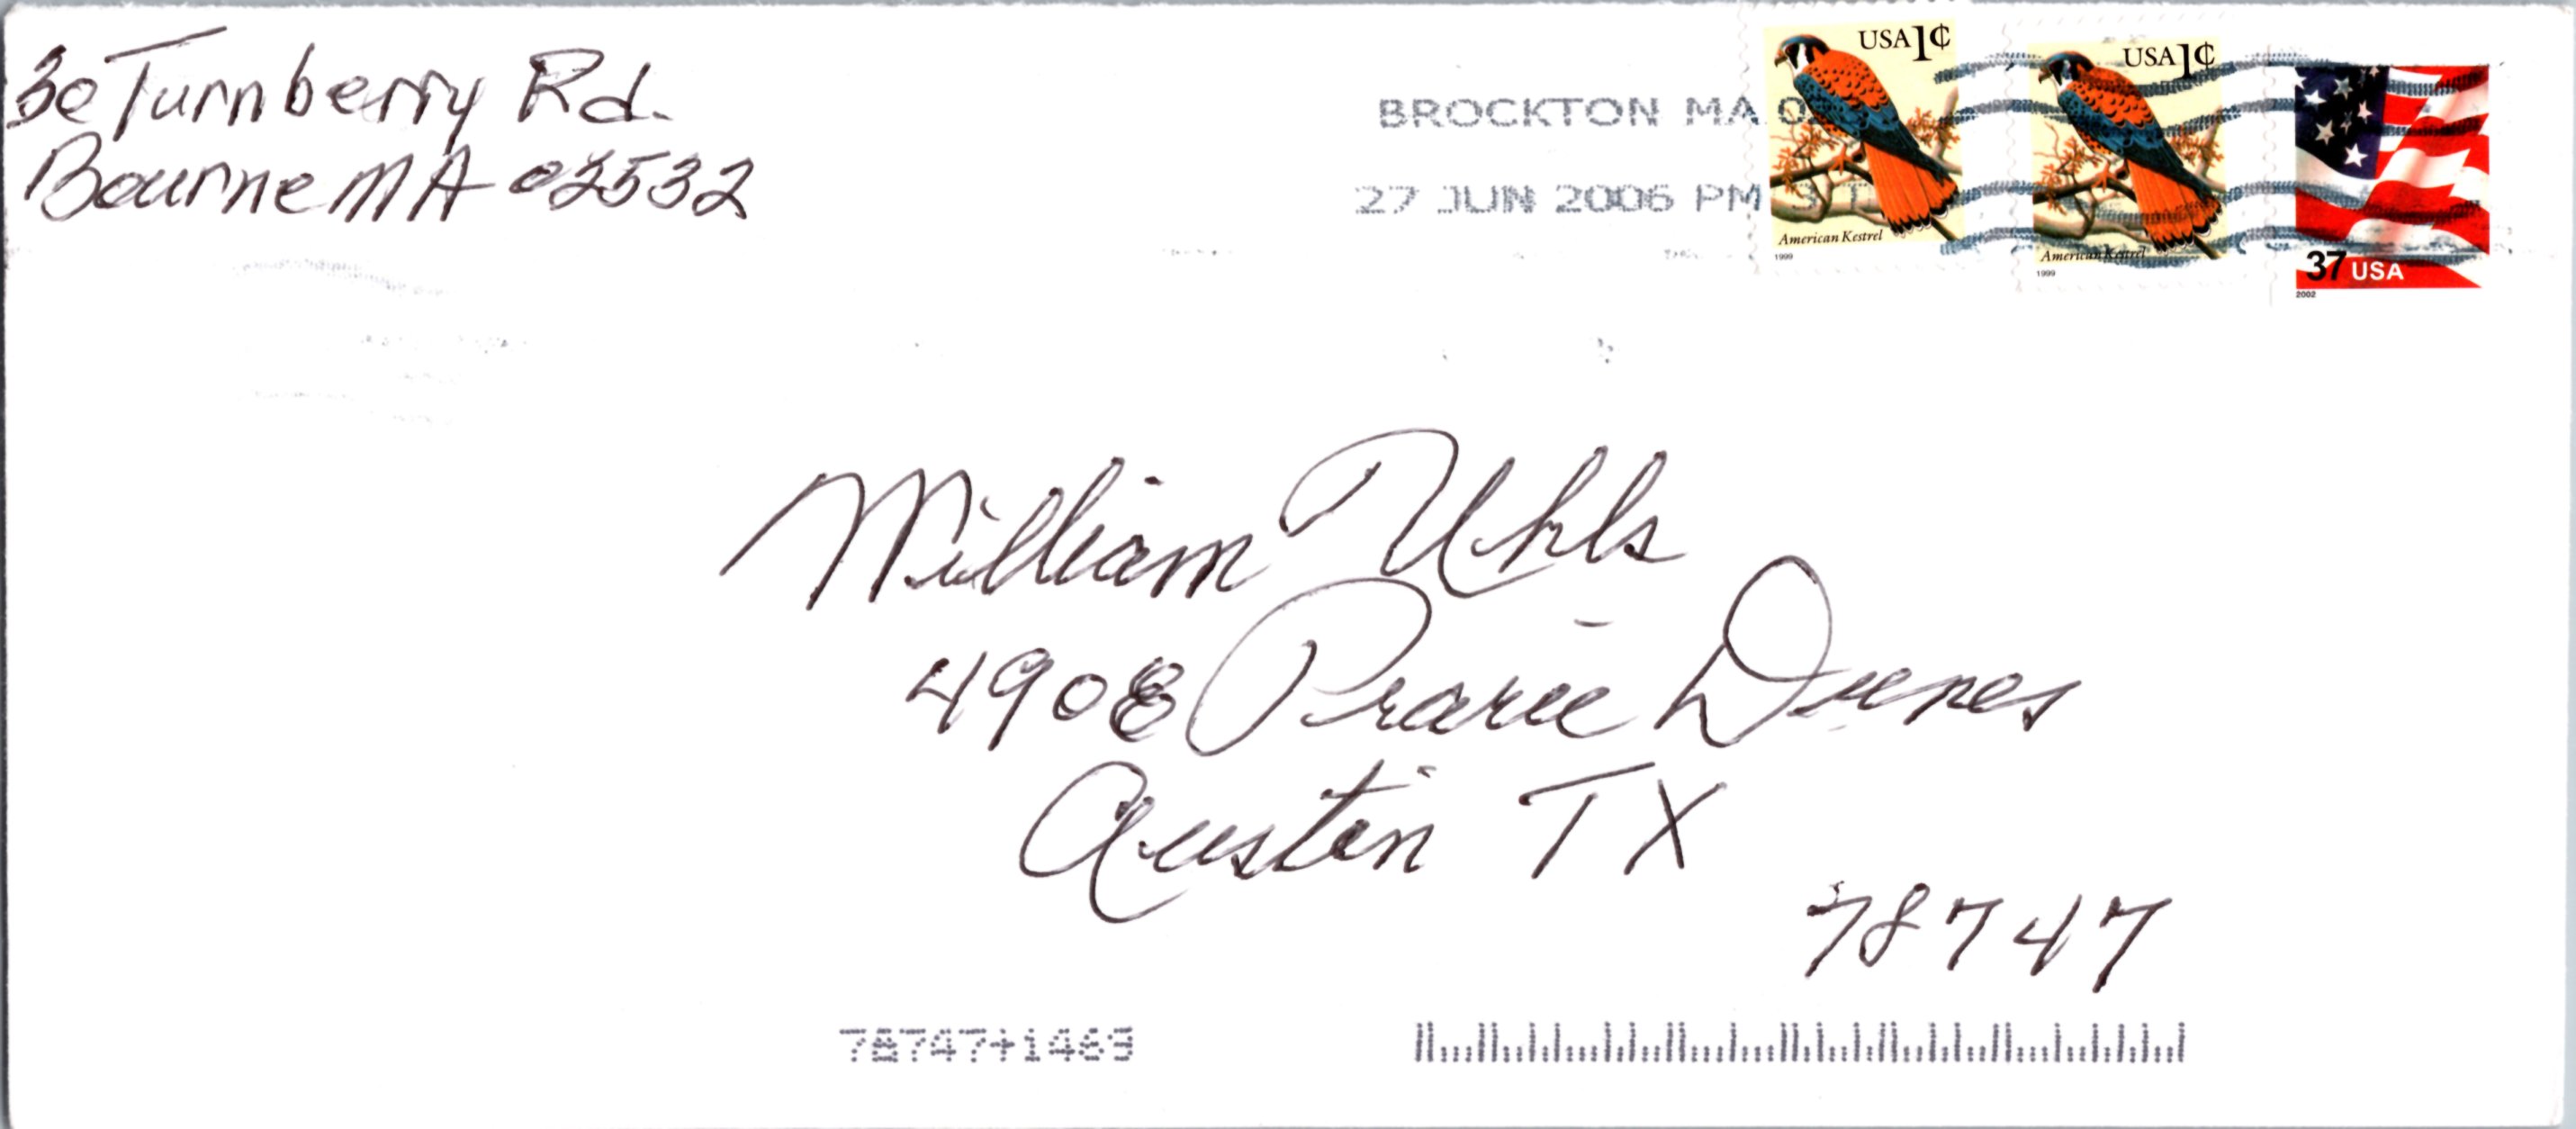 30 Turnberry Rd.
Bourne MA 02532
BROCKTON MA
27 JUN 2006 PM 3 T
USA 1¢
American Kestrel
1999
USA 1¢
American Kestrel
1999
37 USA
2002
William Uhls
4908 Prarie Dunes
Austin TX
78747
78747+1469